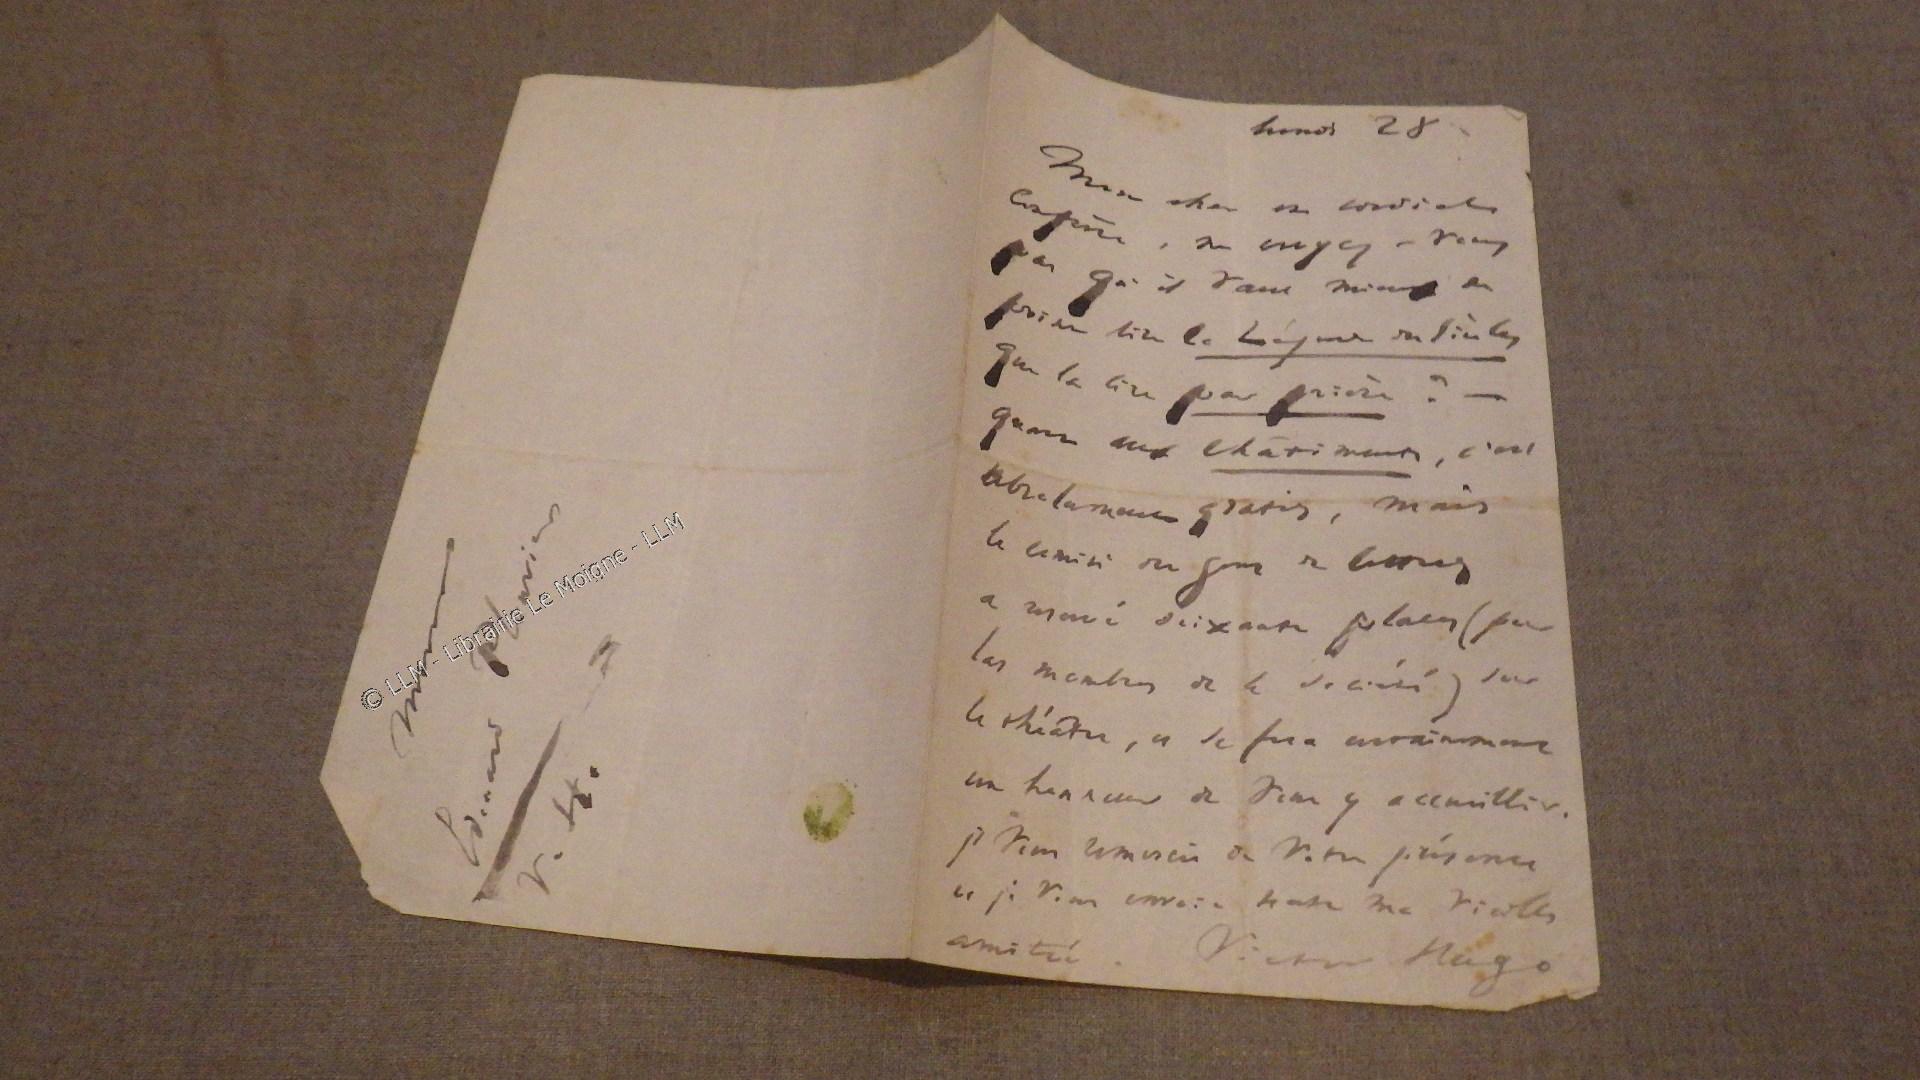 lundi 28
Mon cher et cordial
confrère, ne croyez-vous
pas qu'il vaut mieux en
prison lire la Légende des Siècles
que la lire par prière ? —
quant aux châtiments, c'est
absolument gratis, mais
le comité des gens de lettres
a réservé soixante places (pour
les membres de la société) sur
le théâtre, et se fera certainement
un honneur de vous y accueillir.
je vous remercie de votre présence
et je vous envoie toute ma vieille
amitié. Victor Hugo
Monsieur
Edouard Plouvier
V. H.
© LLM - Librairie Le Moigne - LLM